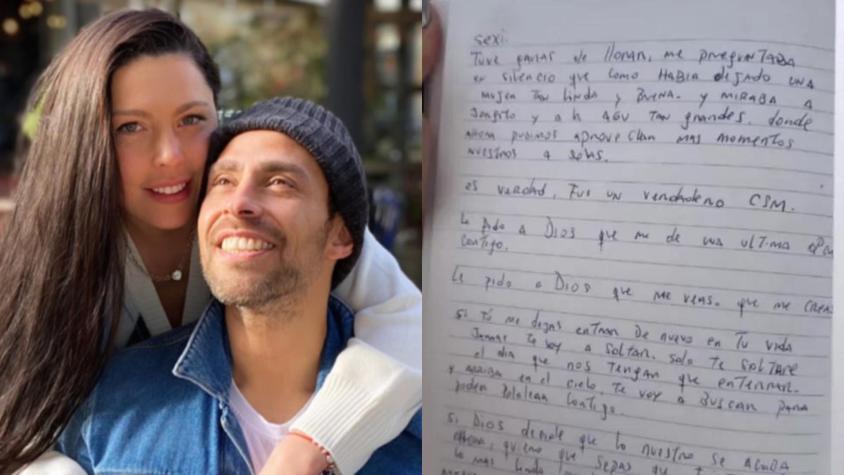 sexi.
Tuve ganas de llorar, me preguntaba
en silencio que como había dejado una
mujer tan linda y buena. y miraba a
y a la AGU tan grandes. donde
ahora pudimos aprovechar más momentos
nuestros a solas.
es verdad, fui un verdadero CSM.
Le pido a Dios que me de una ultima
contigo.
Le pido a Dios que me veas. que me creas
si tú me dejas entrar de nuevo en tu vida
jamas te voy a soltar. solo te soltare
el día que nos tengan que enterrar.
y arriba en el cielo, te voy a buscar para
poder pololear contigo.
si Dios decide que lo nuestro se acaba
ahora, quiero que sepas que
lo mas lindo